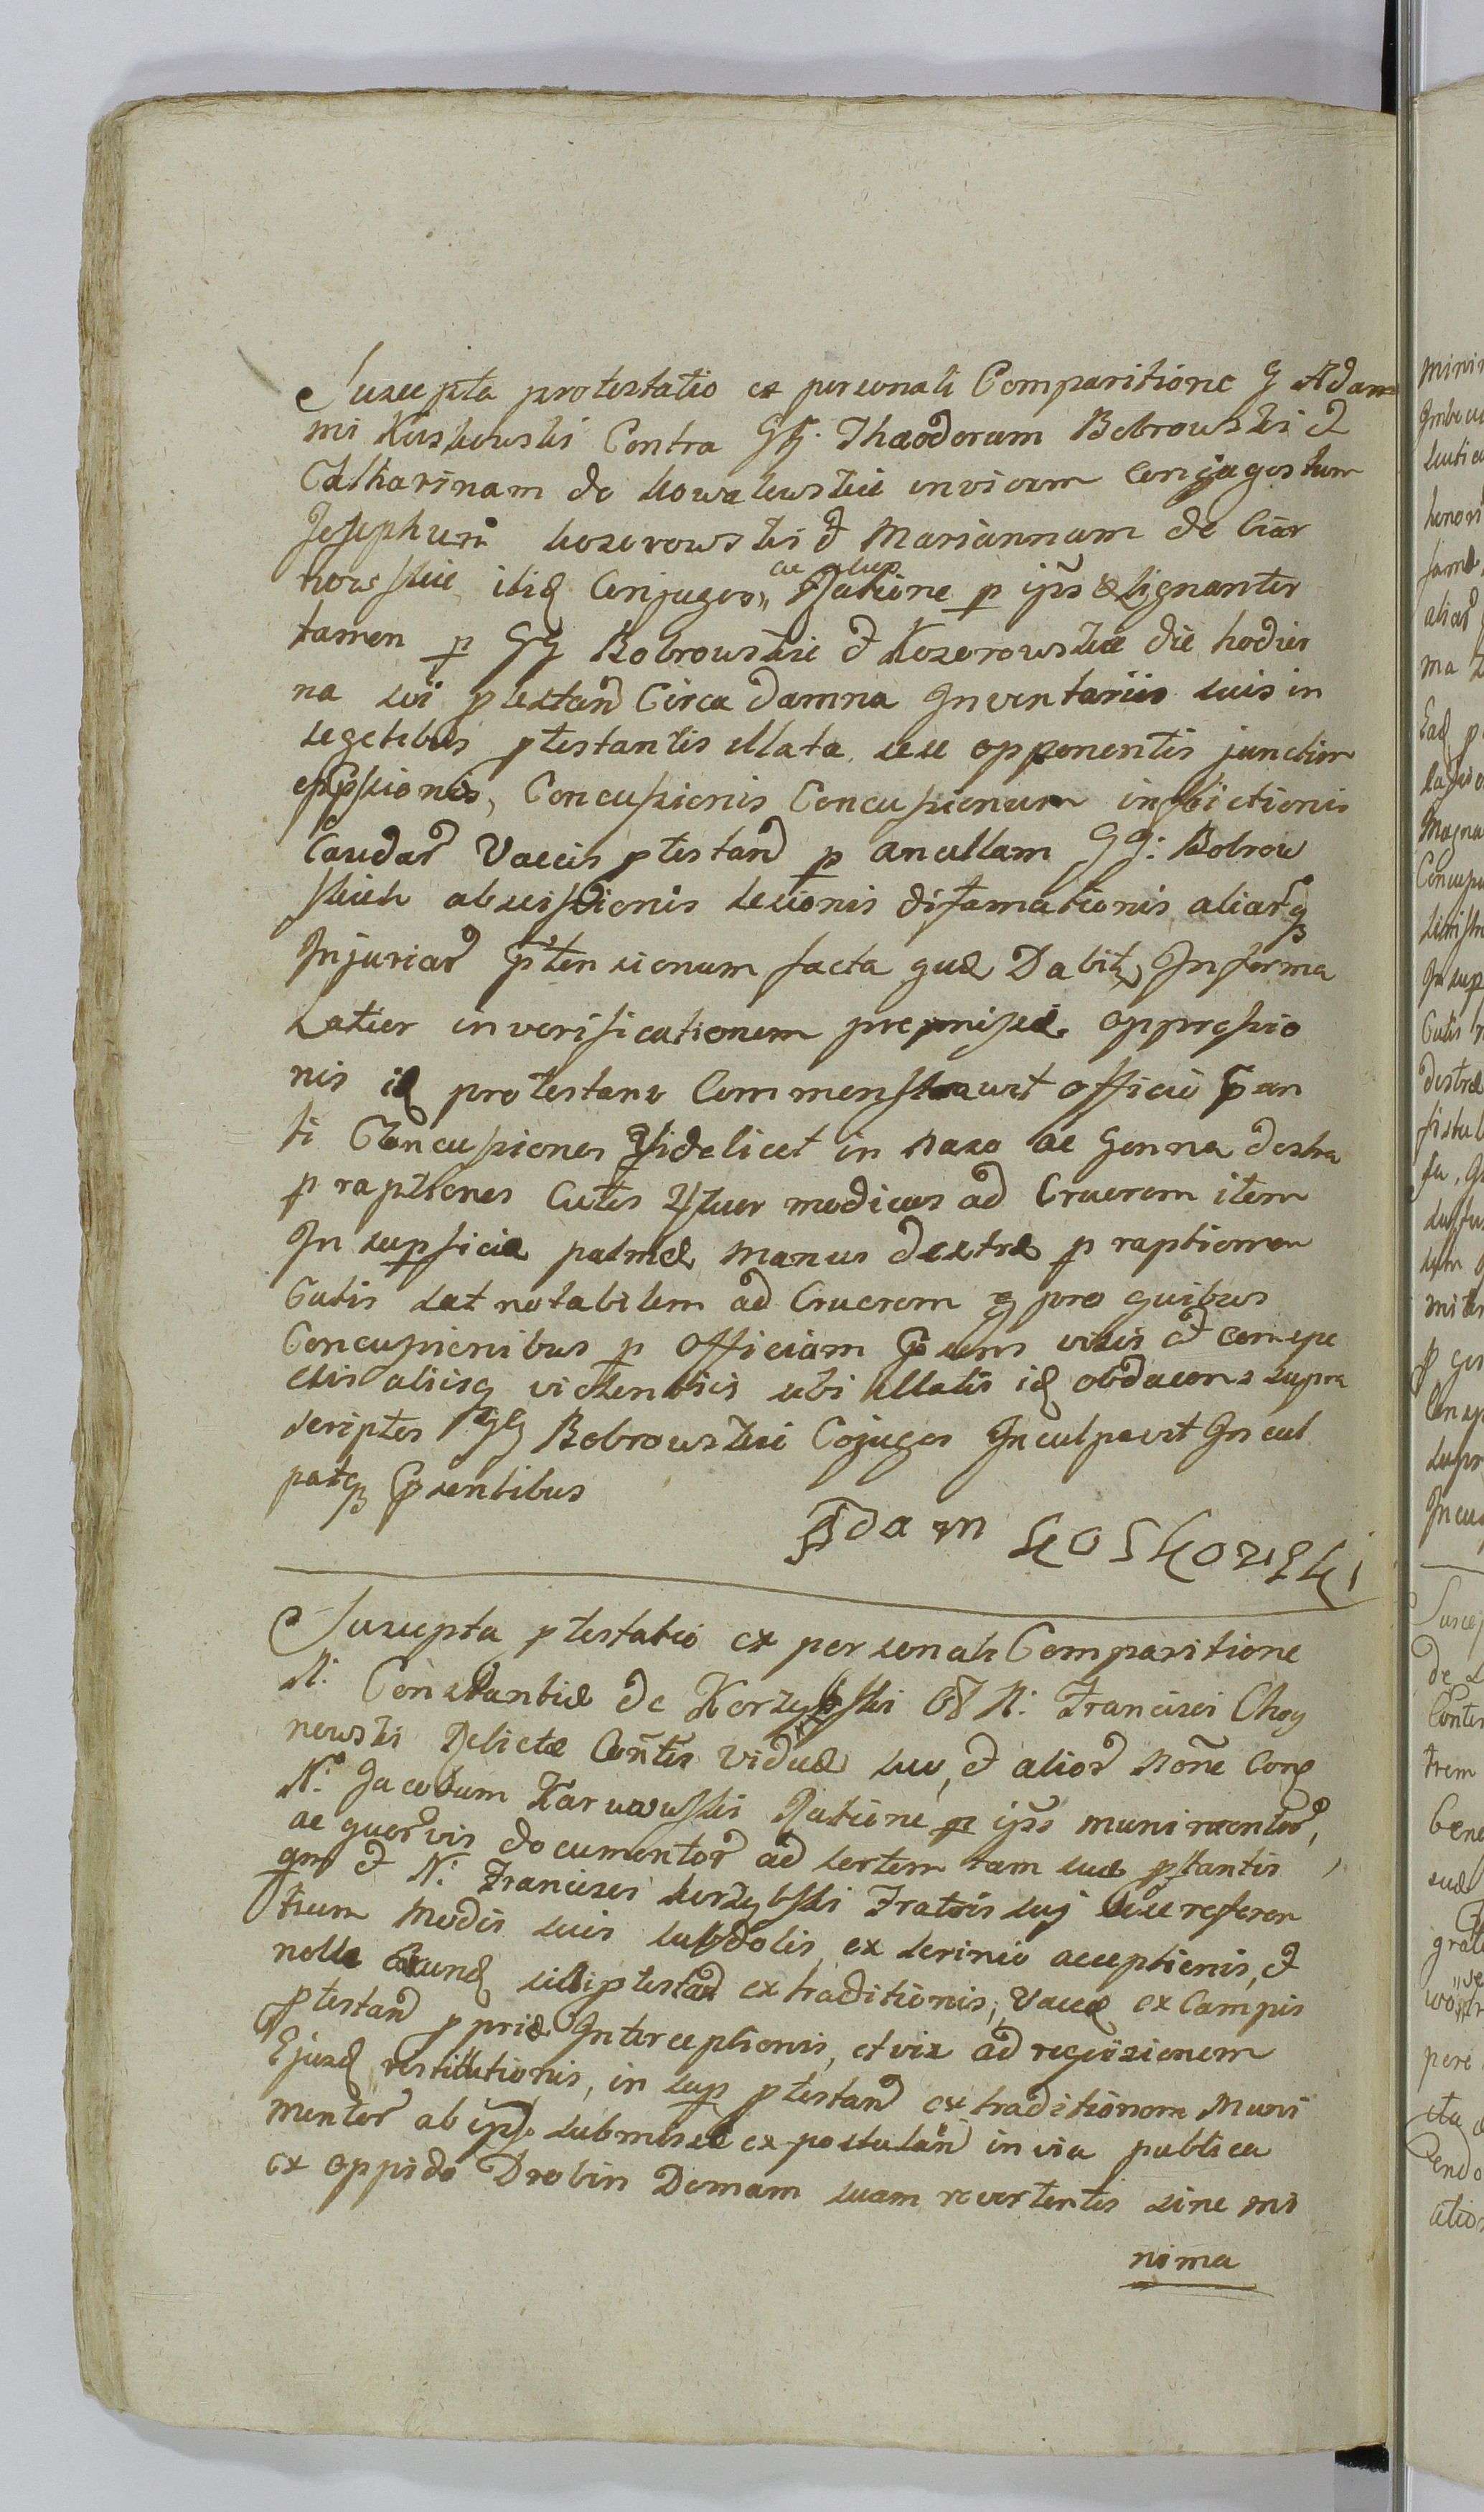 Suscepta protestatio ex personali Comparitione G Ada
mi Koskowski Contra GG. Thaeodorum Bobrowski et
Catharinam de Kowalewskie invicem Conjuges tum
Josephum Kozerowski et Mariannam de Ciar
nowskie itid Conjuges,, ac alios Ratione p ips et signanter
tamen p GG Bobrowskie et Kozerowskie die hodier
na sui ptestan Circa damna Inventariis suis in
segetibus ptestantis illata sese opponentis junctim
oppssionis, Concussionis Concussionum inflictionis
Caudar Vaccis ptestan p ancillam GG: Bobrow
skich abscissionis lesionis difamationis aliarq
Injuriar ptensionum facta quæ Dabit Informa
Latior in verificationem premissæ oppressio
nis id protestans Commonstravit officio pan
ti Concussiones Videlicet in naso ac Genna dextra
p raptiones Cutis 4tuor modicas ad Cruorem item
In supficie palmæ manus dextræ p raptionem
Cutis sat notabilem ad Cruorem q pro quibus
Concussionibus p Officiam psens visis et conspe
ctis aliisq violentiis sibi illatis id obducens supra
scriptos GG Bobrowskie Cojuges Inculpavit Incul
patq psentibus
Adam Koskowski
Suscepta ptestatio ex personali Comparitione
N: Constantiæ de Korzybski Ol N: Francisci Choy
nowski Relictæ Contes Viduæ suo, et alior noñe Cong
N: Jacobum Karwowski Ratione p ips munimentor,
ac quorvis documentor ad sortem tam suæ ptantis,
qm et N: Francisci Korzybski Fratris suj sese referen
tium modis suis subdolis ex scrinio acceptionis, et
nolle eaund sibi ptestan extraditionis, Vaccæ ex Campis
ptestan ppriæ Interceptionis, et vix ad requisionem
Ejusd restitutionis, in sup ptestan extraditionem Muni
mentor ab ipso submisse expostulan in via publica
ex oppido Drobin Domum suam revertentis sine mi
nima